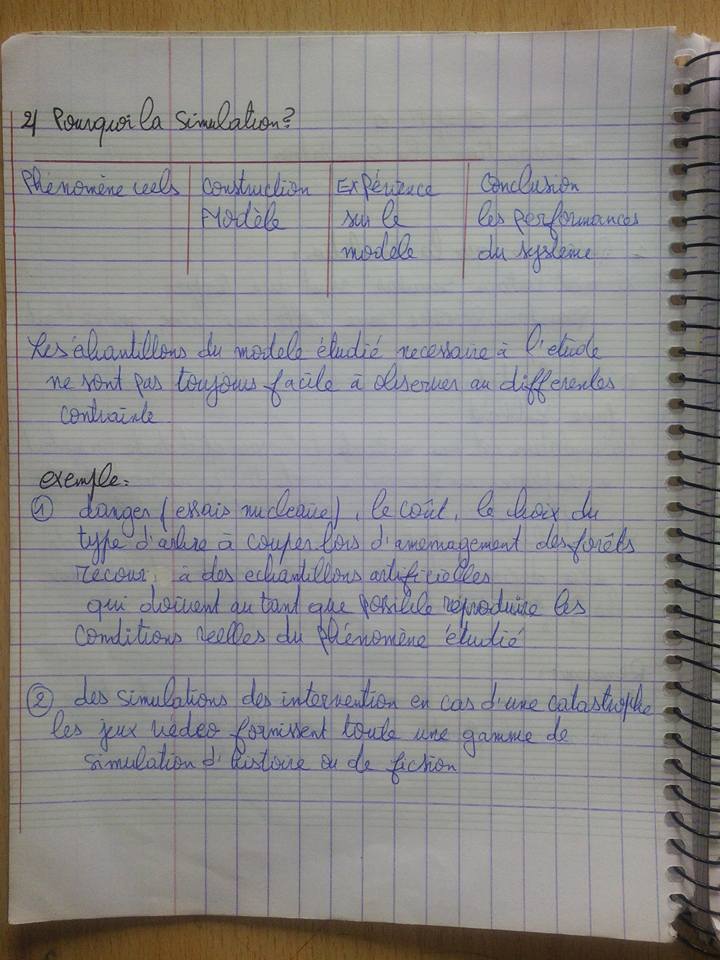 2/ Pourquoi la simulation?
Phénomène reels | Construction Modèle | Expérience sur le modele | Conclusion les performances du système
Les échantillons du modele étudié necessaire à l'etude
ne sont pas toujours facile à observer au differentes
contrainte
exemple:
① danger (essais nucleaire), le coût, le choix du
type d'arbre à couper lors d'amenagement des forêts
recour à des echantillons artificielles
qui doivent au tant que possible reproduire les
conditions reelles du phénomène étudié
② des simulations des intervention en cas d'une catastrophe
les jeux védeo fornissent toute une gamme de
simulation d'histoire ou de fiction